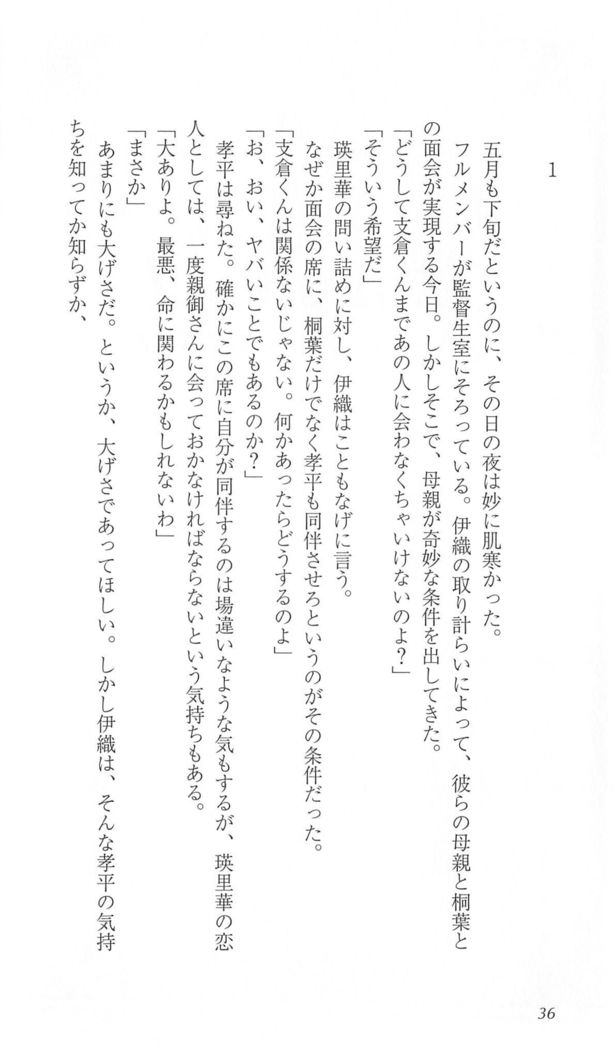 1
五月も下旬だというのに、その日の夜は妙に肌寒かった。
フルメンバーが監督生室にそろっている。伊織の取り計らいによって、彼らの母親と桐葉と
の面会が実現する今日。しかしそこで、母親が奇妙な条件を出してきた。
「どうして支倉くんまであの人に会わなくちゃいけないのよ？」
「そういう希望だ」
瑛里華の問い詰めに対し、伊織はこともなげに言う。
なぜか面会の席に、桐葉だけでなく孝平も同伴させろというのがその条件だった。
「支倉くんは関係ないじゃない。何かあったらどうするのよ」
「お、おい、ヤバいことでもあるのか？」
孝平は尋ねた。確かにこの席に自分が同伴するのは場違いなような気もするが、瑛里華の恋
人としては、一度親御さんに会っておかなければならないという気持ちもある。
「大ありよ。最悪、命に関わるかもしれないわ」
「まさか」
あまりにも大げさだ。というか、大げさであってほしい。しかし伊織は、そんな孝平の気持
ちを知ってか知らずか、
36